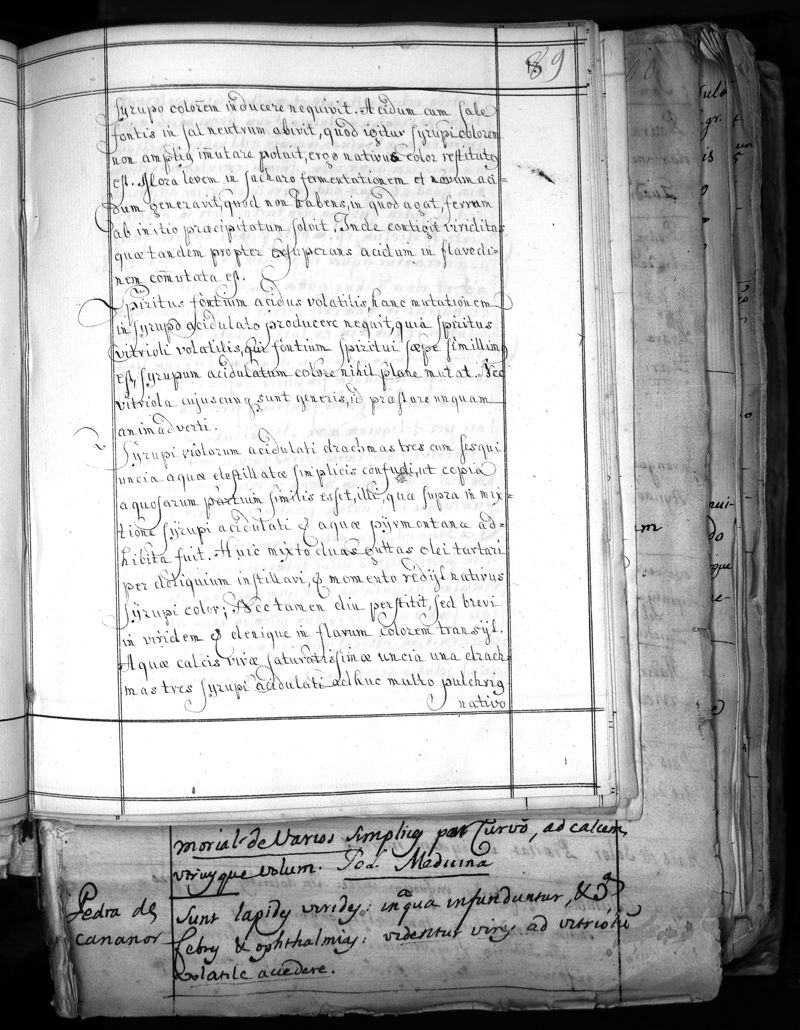 89
Syrupo colorem inducere nequivit. Acidum cum sale
fontis in sal neutrum abivit, quod igitur syrupi colorem
non ampliq im̃utare potuit, ergo nativus color restitutq
est. Mora levem in sucharo fermentationem et novum aci=
dum generavit, quod non habens, in quod agat, ferrum
ab initio præcipitatum solvit. Inde contigit viriditas
quæ tandem propter exsuperans acidum in flavedi=
nem com̃utata est.
Spiritus fontium acidus volatilis, hanc mutationem
in syrupo acidulato producere nequit, quia spiritus
vitrioli volatilis, qui fontium spiritui sæpe simillimq
est, syrupum acidulatum colore nihil plane mutat. Nec
vitriola cujuscunq sunt generis, id præstare unquam
animadverti.
Syrupi violorum acidulati drachmas tres cum sesqui
uncia aquæ destillatæ simplicis confudi, ut copia
aquosarum partium similis esset, illi, quæ supra in mix=
tione syrupi acidulati & aquæ pyrmontanæ ad=
hibita fuit. Huic mixto duas guttas olei tartari
per deliquium instillavi, & momento redijt nativus
syrupi color; Nec tamen diu perstitit, sed brevi
in viridem & denique in flavum colorem transijt.
Aquæ calcis vivæ saturatissimæ uncia una drach=
mas tres syrupi acidulati adhuc multo pulchriq
nativo
morial de Varios simpliq par Curvõ, ad calcem
utriusque volum. Medicina
Pedra de
Cananor
Sunt lapides virides: in qua infunduntur, &
febry & ophthalmiaq: videntur vires ad vitriolũ
volatile accedere.